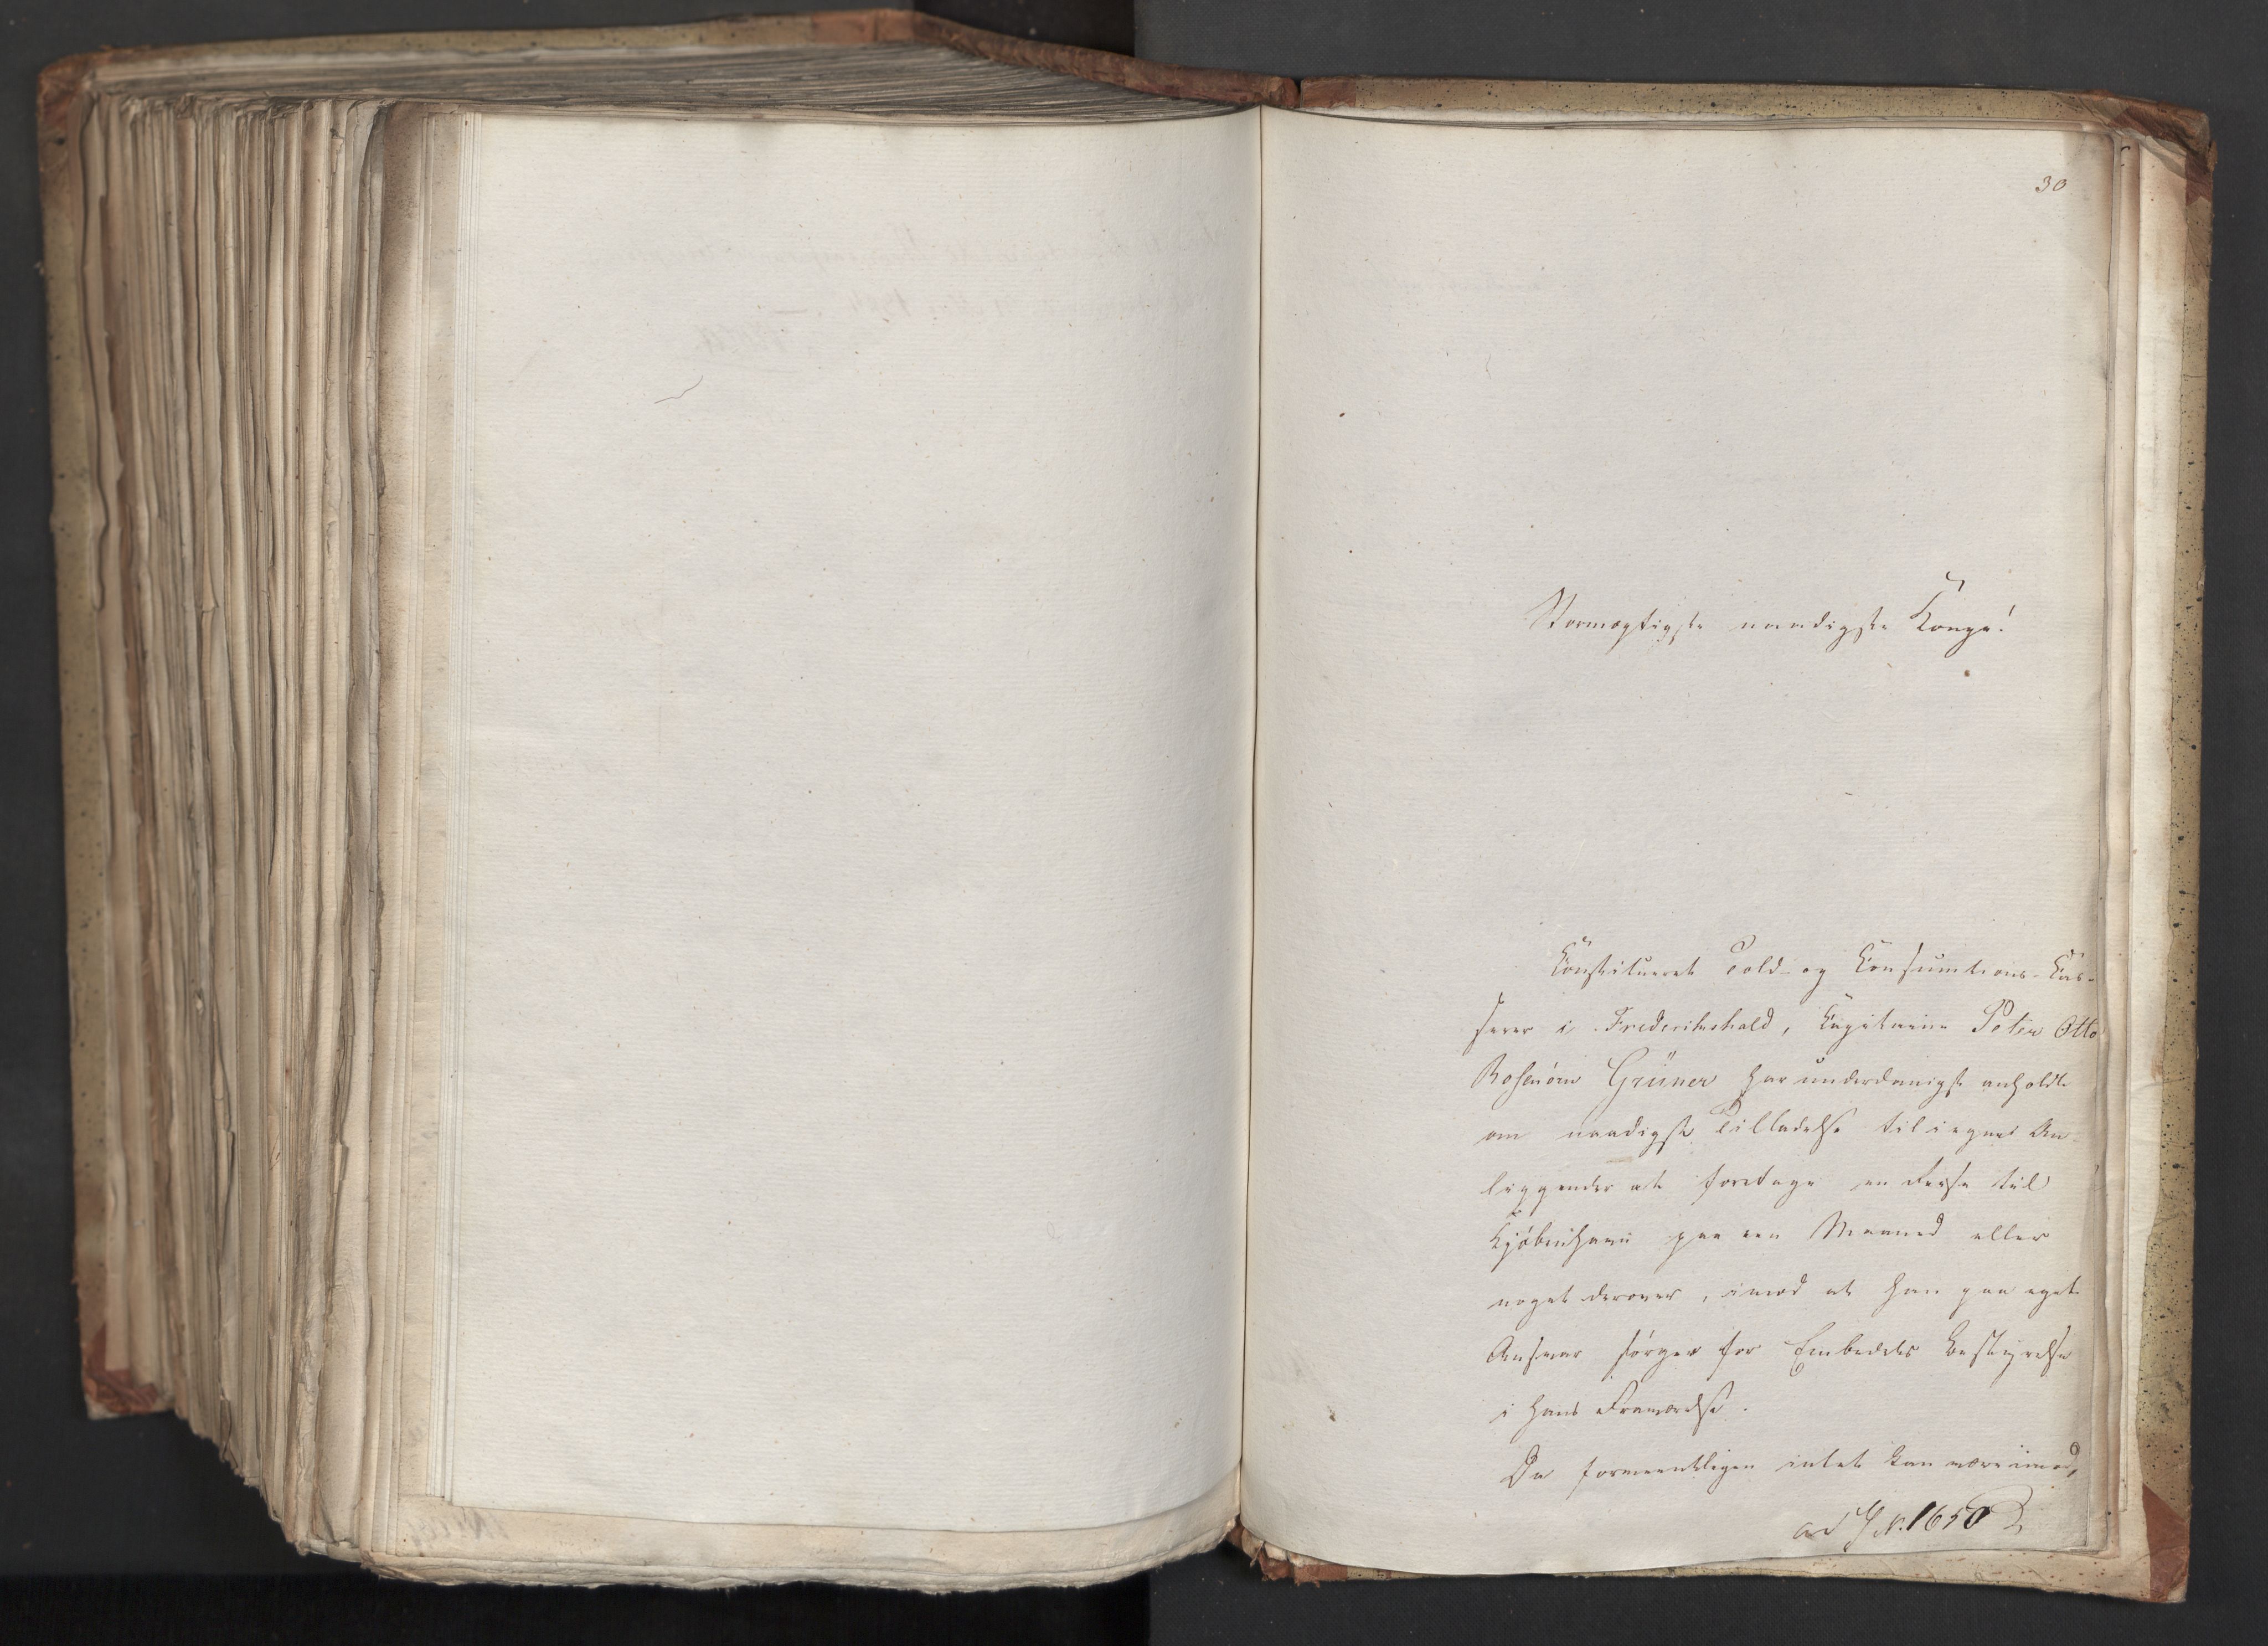 30
Stormægtigste naadigste Konge!
Constitueret Told- og Consumtions-Cas-
serer i Frederikshald, Capitaine Peter Otto
Rosenørn Grüner har underdanigst anholdt
om naadigst Tilladelse til i egne An-
liggender at foretage en Reise til
Kjöbenhavn paa een Maaned eller
noget derover, imod at han paa eget
Ansvar sörger for Embedets Bestyrelse
i hans Fraværelse.
Da formeentligen intet kan være imod,
ad No. 1650